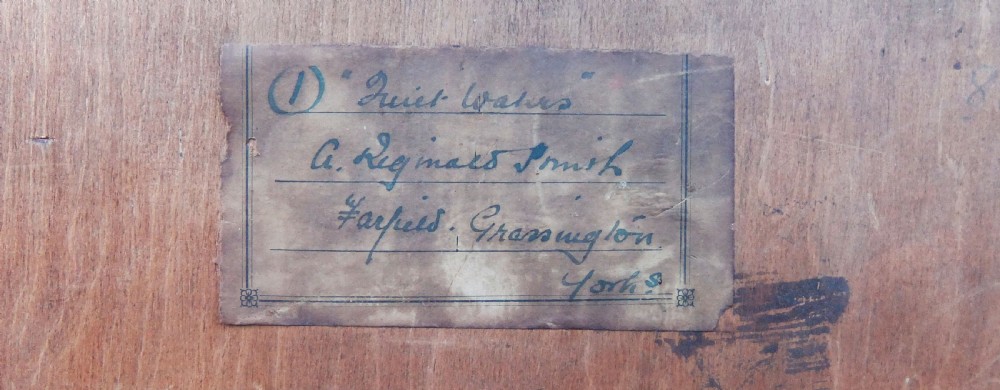 ① "Quiet Waters"
A. Reginald Smith
Farfield. Grassington
Yorks.